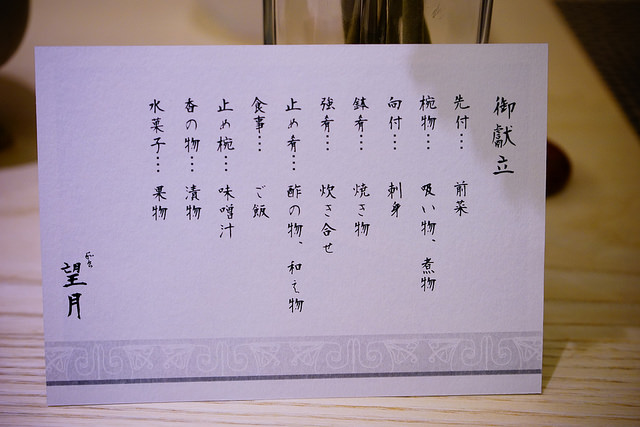 御獻立
先付… 前菜
椀物… 吸い物、煮物
向付… 刺身
鉢肴… 焼き物
強肴… 炊き合せ
止め肴… 酢の物、和え物
食事… ご飯
止め椀… 味噌汁
香の物… 漬物
水菓子… 果物
望月